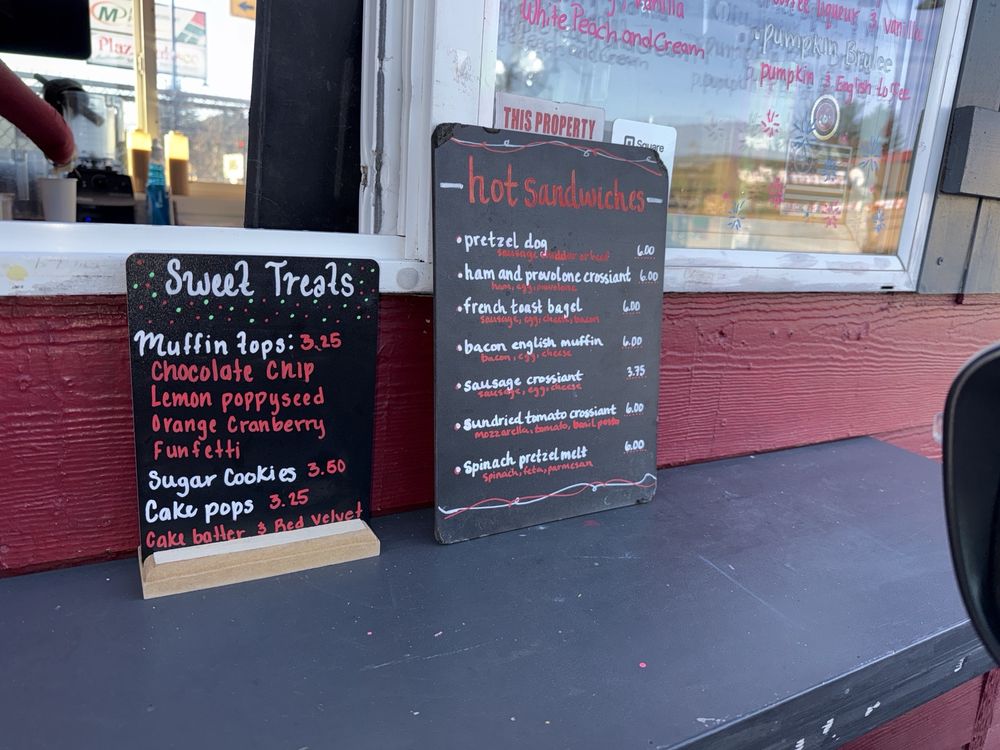 White Peach and Cream
Liqueur & Vanilla
Pumpkin Brulee
pumpkin & English toffee
THIS PROPERTY
Square
Sweet Treats
Muffin Tops: 3.25
Chocolate Chip
Lemon poppyseed
Orange Cranberry
Funfetti
Sugar Cookies 3.50
Cake pops 3.25
Cake batter & Red Velvet
hot sandwiches
• pretzel dog 6.00
sausage cheddar or beef
• ham and provolone crossiant 6.00
ham, egg, provolone
• french toast bagel 6.00
sausage, egg, cheese, bacon
• bacon english muffin 6.00
bacon, egg, cheese
• sausage crossiant 3.75
sausage, egg, cheese
• sundried tomato crossiant 6.00
mozzarella, tomato, basil pesto
• spinach pretzel melt 6.00
spinach, feta, parmesan